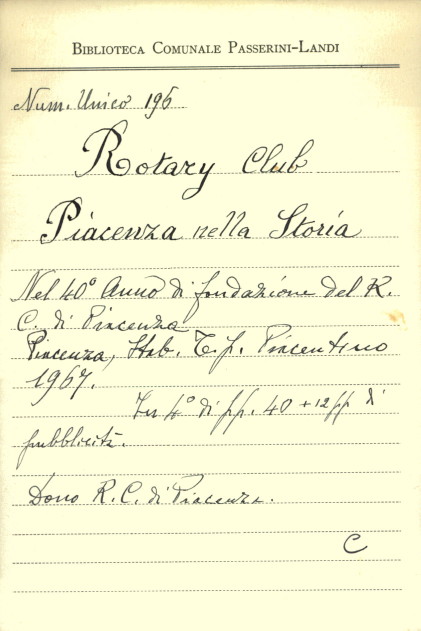 BIBLIOTECA COMUNALE PASSERINI-LANDI
Num. Unico 196
Rotary Club
Piacenza nella Storia
Nel 40° Anno di fondazione del R.
C. di Piacenza
Piacenza, Stab. Tip. Piacentino
1967.
In 4° di pp. 40 + 12 pp di
pubblicità.
Dono R. C. di Piacenza.
C